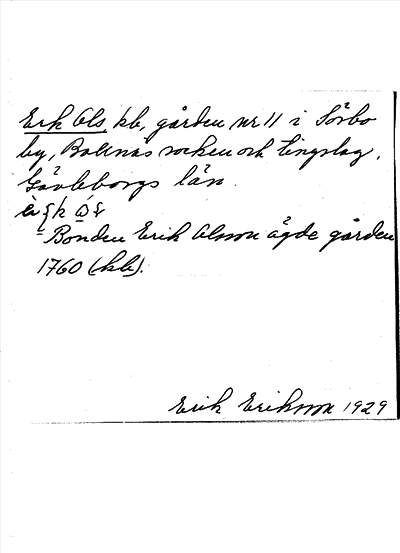 Erk Ols, kb, gården nr 11 i Sörbo
by, Bollnäs socken och tingslag,
Gävleborgs län.
Bonden Erik Olsson ägde gården
1760 (kb).
Erik Eriksson 1929